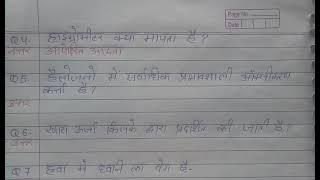 Page No.
Date
Q4. हाइग्रोमीटर क्या मापता है?
उत्तर आपेक्षिक आर्द्रता
Q5. हैलोजनो में सर्वाधिक प्रभावशाली ऑक्सीकरण
कर्ता है?
उत्तर
Q6- ऊर्जा किसके द्वारा प्रदर्शित की जाती है।
उत्तर
Q7 हवा में ध्वनि का वेग है-